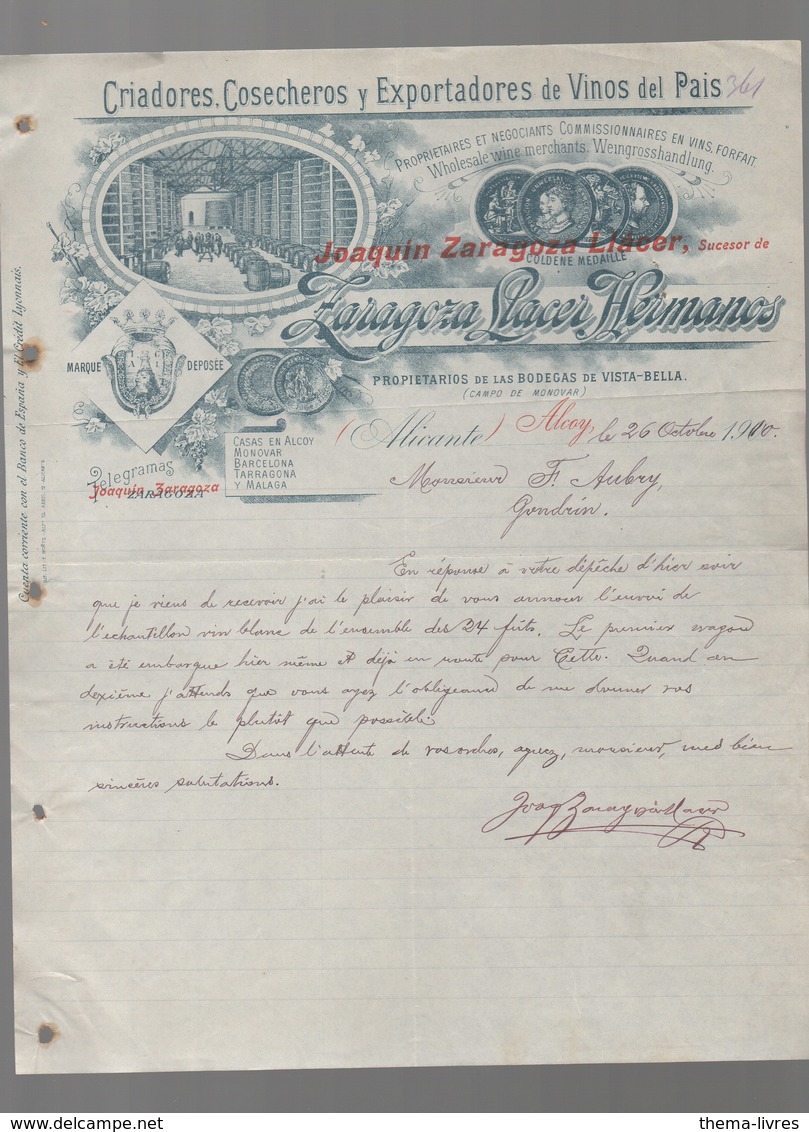 Criadores, Cosecheros y Exportadores de Vinos del Pais
361
PROPRIETAIRES ET NEGOCIANTS COMMISSIONNAIRES EN VINS, FORFAIT.
Wholesale wine merchants. Weingrosshandlung.
Joaquín Zaragoza Llácer, Sucesor de
COLDENE MEDAILLE
Zaragoza Llacer Hermanos
MARQUE DEPOSÉE
PROPIETARIOS DE LAS BODEGAS DE VISTA-BELLA.
(CAMPO DE MONOVAR)
(Alicante) Alcoy, le 26 Octobre 1.910.
CASAS EN ALCOY
MONOVAR
BARCELONA
TARRAGONA
Y MALAGA
Telegramas
Joaquín Zaragoza
ZARAGOZA
Cuenta corriente con el Banco de España y El Crédit Lyonnais.
Monsieur F. Aubry,
Gondrin.
En réponse à votre dépêche d'hier soir
que je viens de recevoir j'ai le plaisir de vous annocer l'envoi de
l'echantillon vin blanc de l'ensemble des 24 fûts. Le premier wagon
a été embarque hier même et dejà en route pour Cette. Quand au
dexiéme j'attends que vous ayez l'obligeance de me donner vos
instructions le plutôt que possible.
Dans l'attente de vos ordres, agreez, monsieur, mes bien
sincères salutations.
Joaq Zaragoza Llacer
delcampe.net
thema-livres